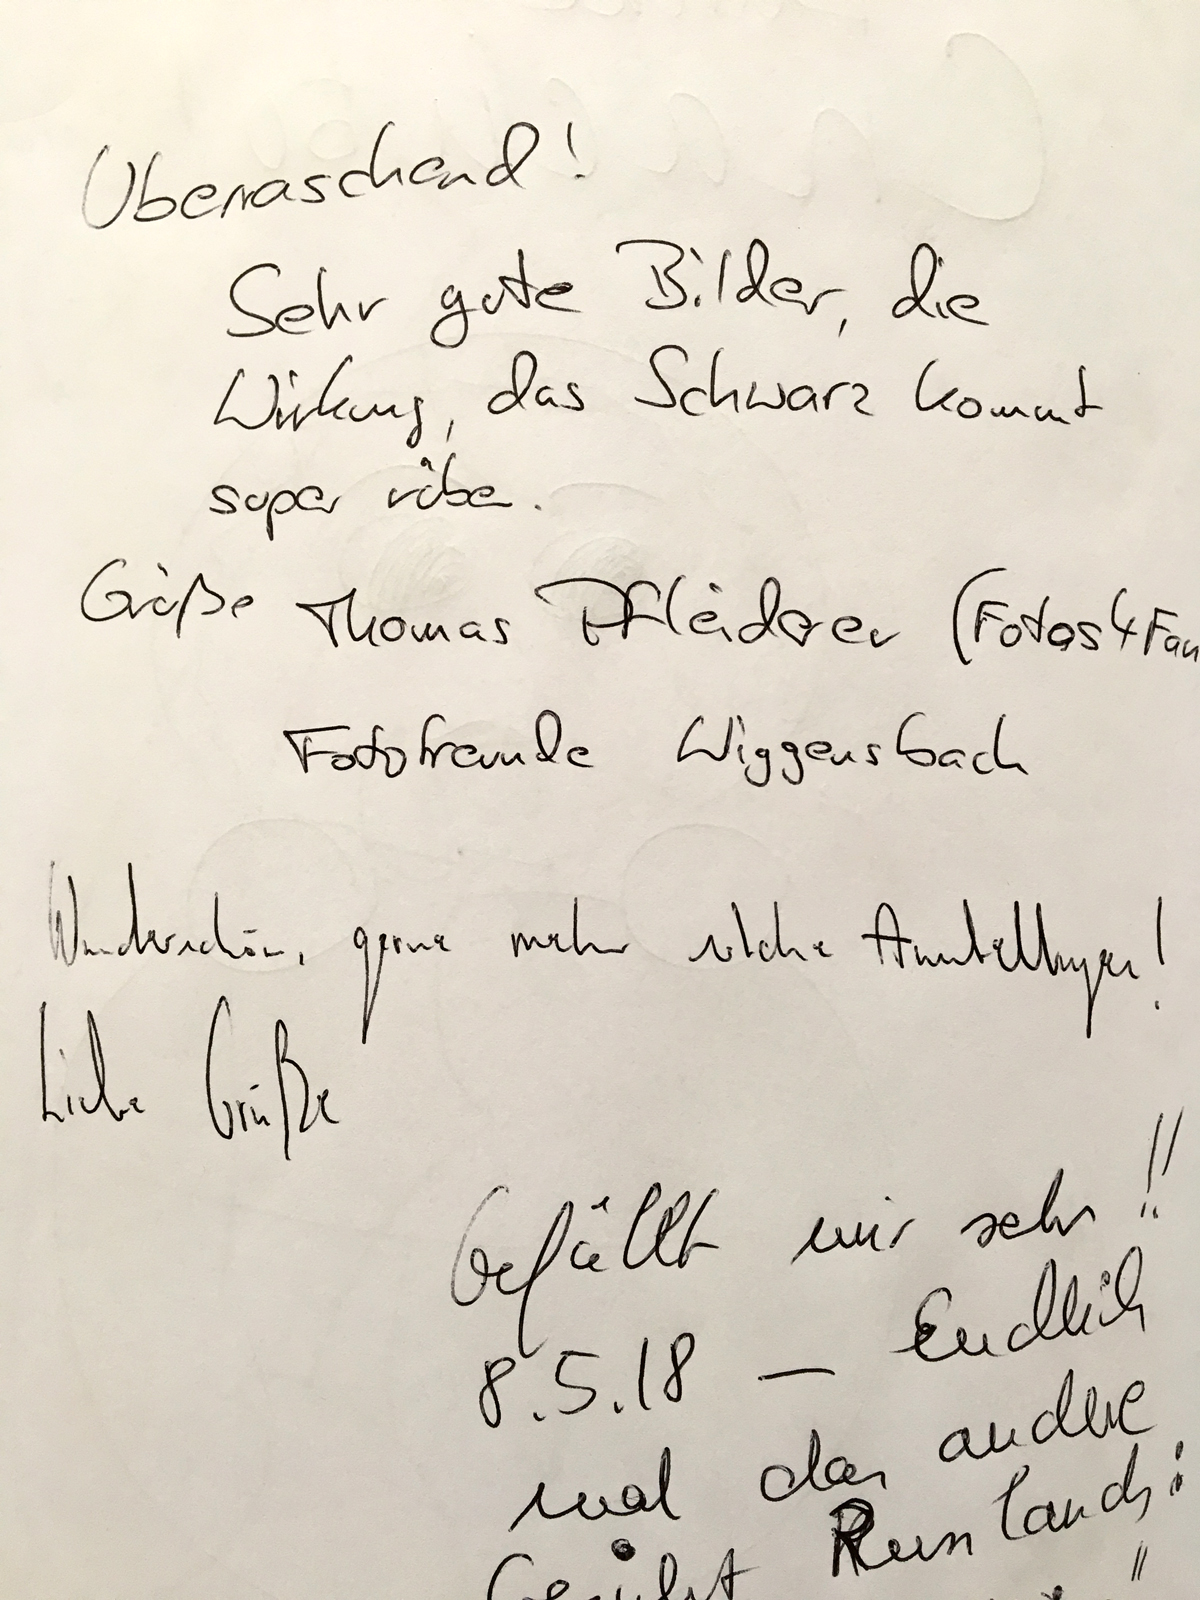 Überraschend!
Sehr gute Bilder, die
Wirkung, das Schwarz kommt
super rübe.
Grüße Thomas Pfleiderer (Fotos4Fan
Fotofreunde Wiggensbach
Wunderschön, gerne mehr solche Ausstellungen!
Liebe Grüße
Gefällt mir sehr!!
8.5.18 – Endlich
mal das andere
Gesicht Russlands!